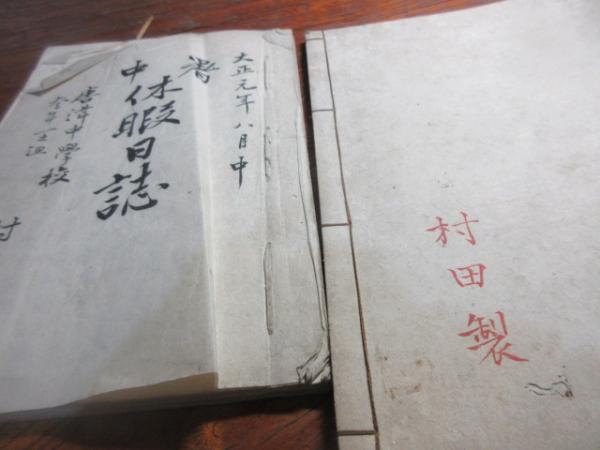 大正元年八月中
暑中休暇日誌
唐津中學校
参年丁組
村
村田製